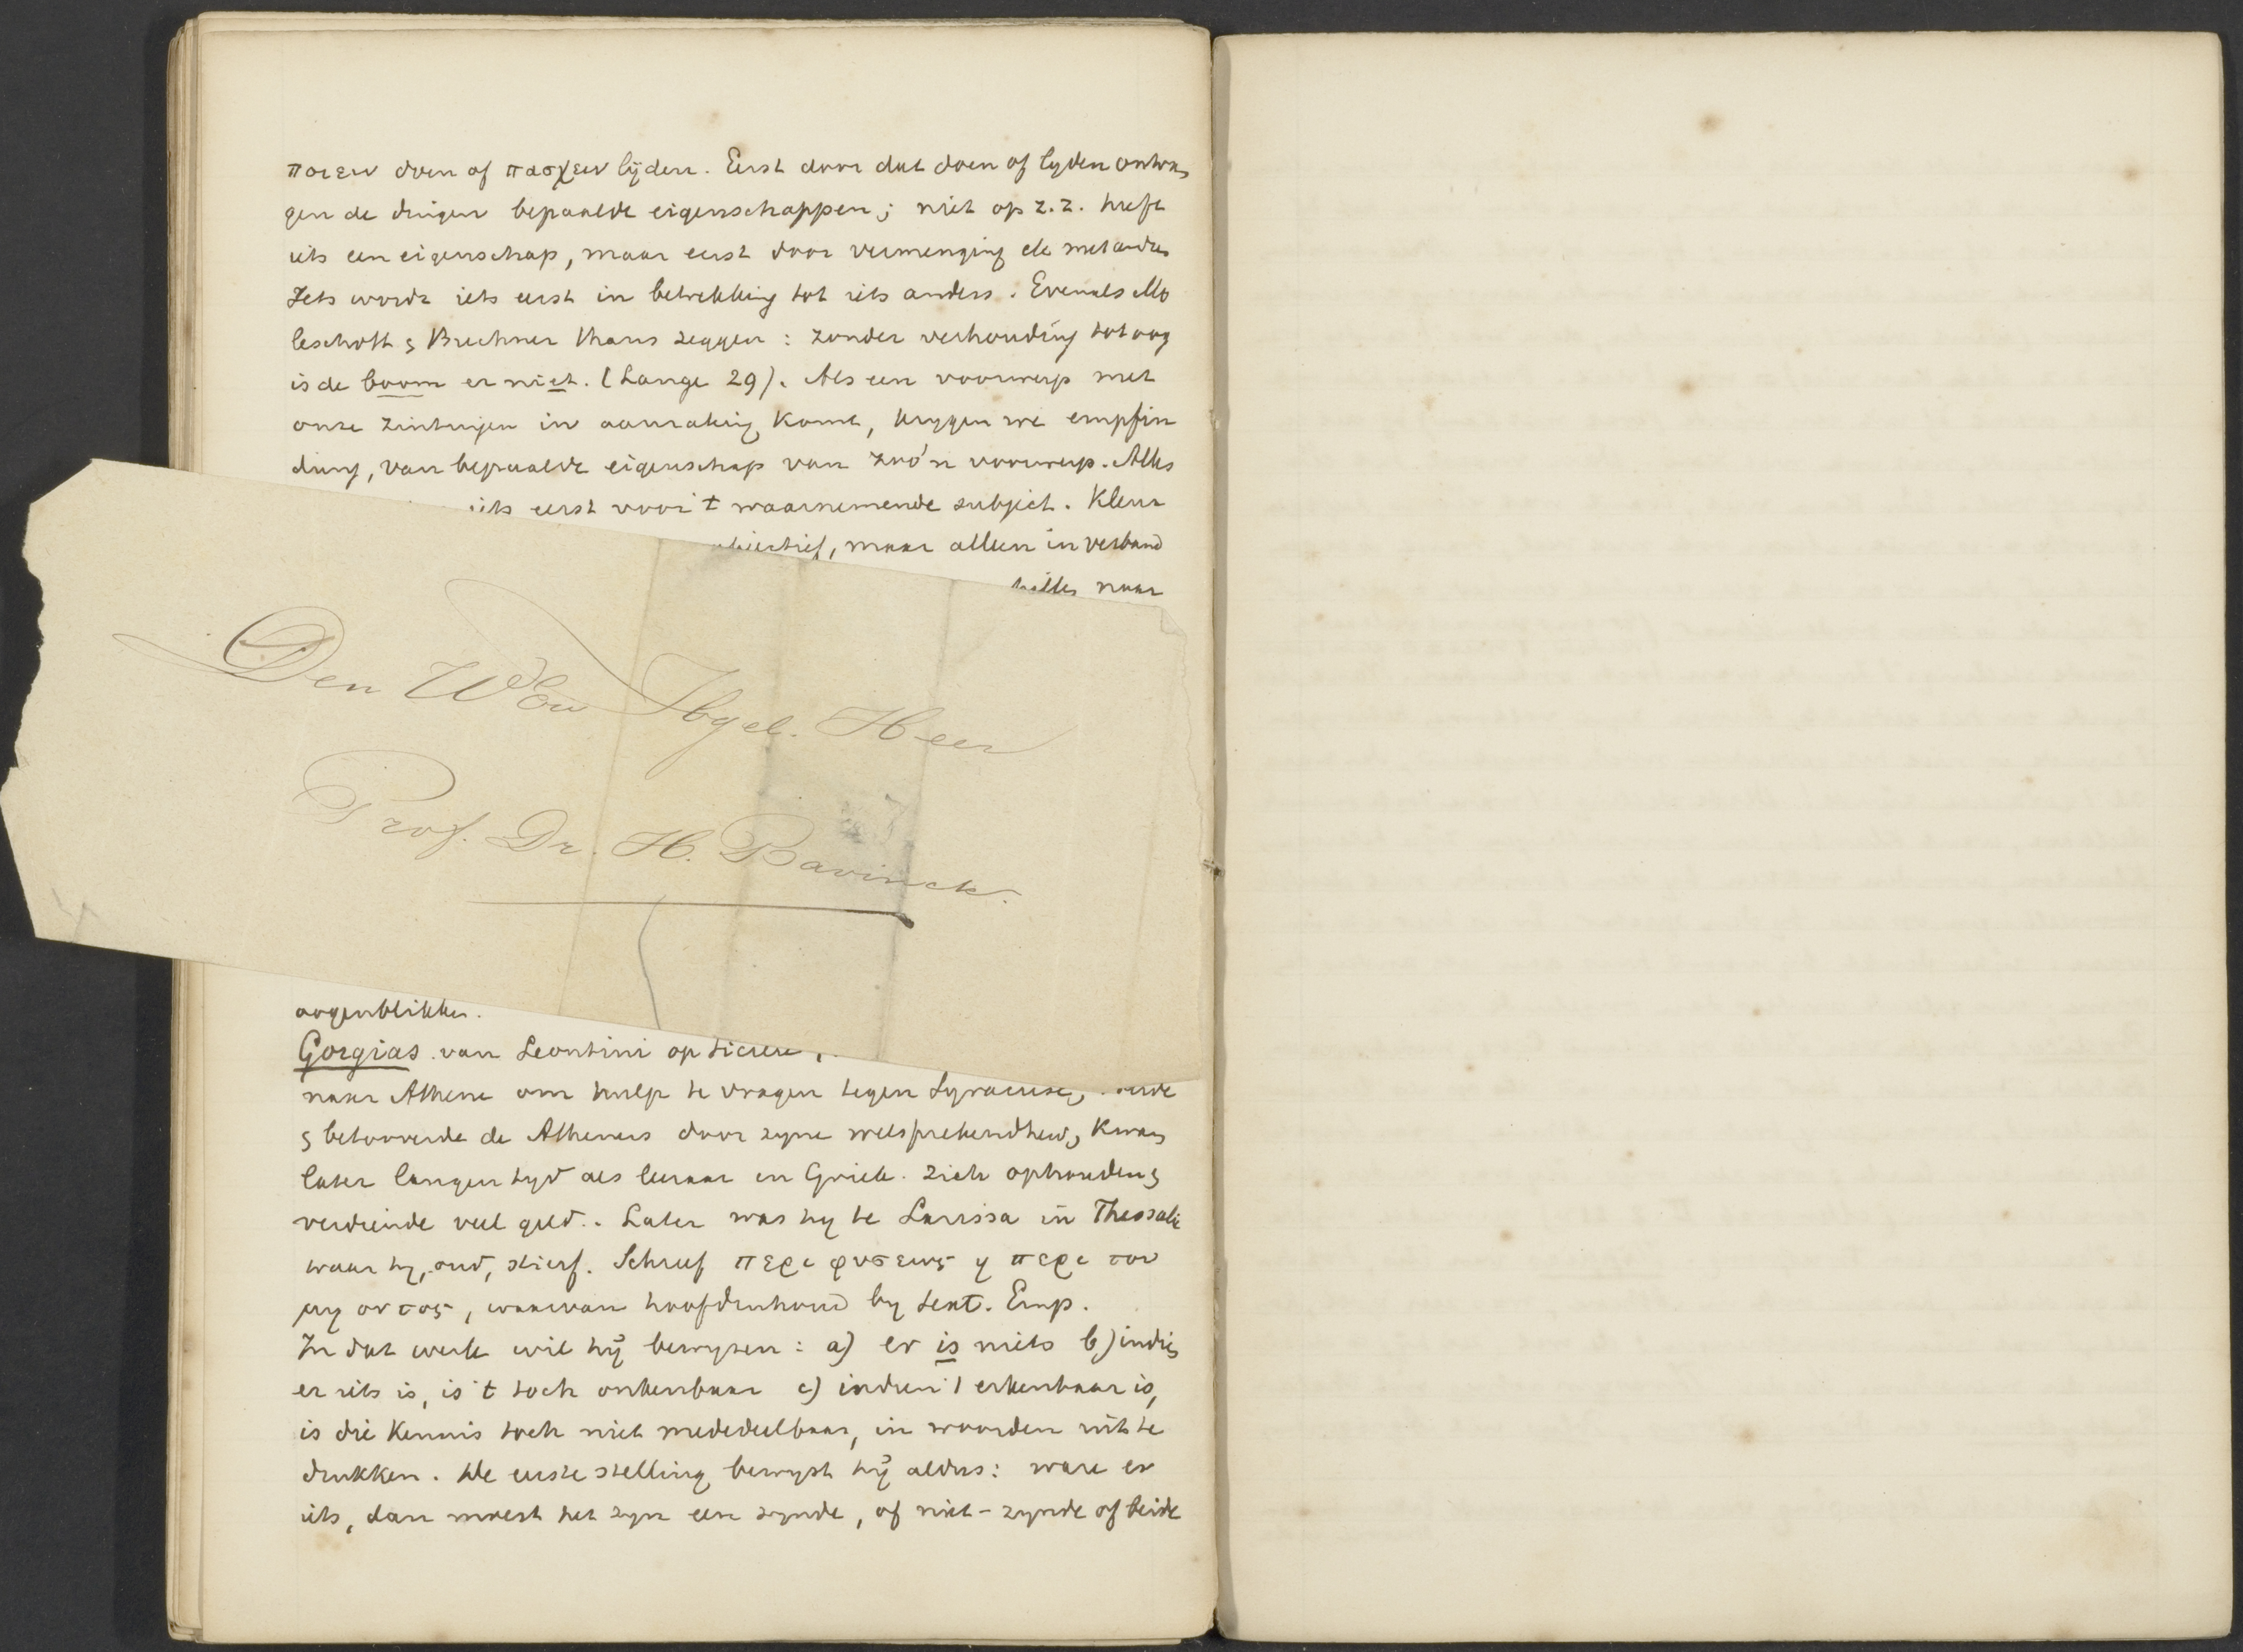 ποιειν doen of πασχειν lijden. Eerst door dat doen of lyden ontva
gen de dingen bepaalde eigenschappen; niet op z.z. heeft
iets een eigenschap, maar eerst door vermenging etc met andre
Iets wordt iets eerst in betrekking tot iets anders. Evenals Mo
leschott & Buchner thans zeggen: zonder verhouding tot oog
is de boom er niet. (Lange 29). Als een voorwerp met
onze zintuigen in aanraking komt, krygen we empfin
dung, van bepaalde eigenschap van zoo'n voorwerp. Alles
iets eerst voor 't waarnemende subject. Kleur
objectief, maar alleen in verband
naar
Den WEd Hgel. Heer
Prof. Dr. H. Bavinck.
oogenblikken.
Gorgias van Leontini op Sicilie,
naar Athene om hulp te vragen tegen Syracuse,
& betooverde de Atheners door zyne welsprekendheid, kwam
later langen tyd als leeraar in Griek. zich ophouden &
verdiende veel geld. Later was hy te Larissa in Thessalie
waar hy, oud, stierf. Schreef περι φυσεως η περι του
μη οντος, waarvan hoofdinhoud by Sext. Emp.
In dat werk wil hij bewyzen: a) er is niets b) indien
er iets is, is 't toch onkenbaar c) indien 't erkenbaar is,
is die kennis toch niet mededeelbaar, in woorden uit te
drukken. De eerste stelling bewyst hij aldus: ware er
iets, dan moest het zyn een zynde, of niet-zynde of beide